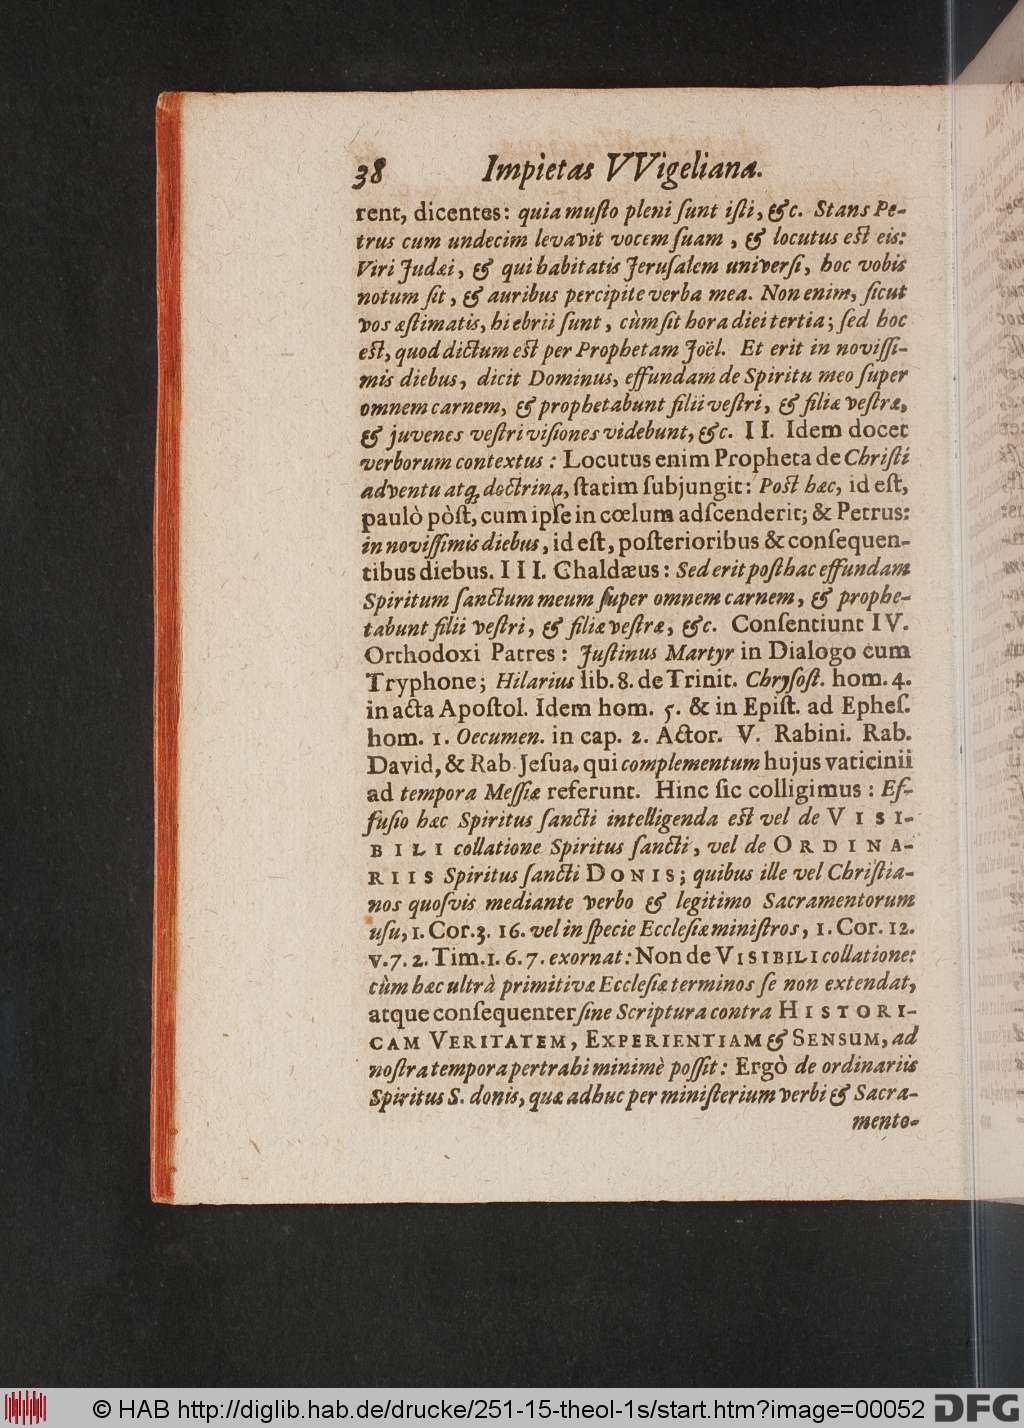 38 Impietas VVigeliana.
rent, dicentes: quia muſto pleni ſunt iſti, &c. Stans Pe-
trus cum undecim levavit vocem ſuam, & locutus eſt eis:
Viri Judæi, & qui habitatis Jeruſalem univerſi, hoc vobis
notum ſit, & auribus percipite verba mea. Non enim, ſicut
vos æſtimatis, hi ebrii ſunt, cùm ſit hora diei tertia; ſed hoc
eſt, quod dictum eſt per Prophetam Joël. Et erit in noviſſi-
mis diebus, dicit Dominus, effundam de Spiritu meo ſuper
omnem carnem, & prophetabunt filii veſtri, & filiæ veſtræ,
& juvenes veſtri viſiones videbunt, &c. II. Idem docet
verborum contextus: Locutus enim Propheta de Chriſti
adventu atq; doctrina, ſtatim ſubjungit: Poſt hæc, id eſt,
paulò pòſt, cum ipſe in cœlum adſcenderit; & Petrus:
in noviſſimis diebus, id eſt, poſterioribus & conſequen-
tibus diebus. III. Chaldæus: Sed erit poſt hac effundam
Spiritum ſanctum meum ſuper omnem carnem, & prophe-
tabunt filii veſtri, & filiæ veſtræ, &c. Conſentiunt IV.
Orthodoxi Patres: Juſtinus Martyr in Dialogo cum
Tryphone; Hilarius lib. 8. de Trinit. Chryſoſt. hom. 4.
in acta Apoſtol. Idem hom. 5. & in Epiſt. ad Epheſ.
hom. 1. Oecumen. in cap. 2. Actor. V. Rabini. Rab.
David, & Rab Jeſua, qui complementum hujus vaticinii
ad tempora Meſſiæ referunt. Hinc ſic colligimus: Ef-
fuſio hæc Spiritus ſancti intelligenda eſt vel de VISI-
BILI collatione Spiritus ſancti, vel de ORDINA-
RIIS Spiritus ſancti DONIS; quibus ille vel Chriſtia-
nos quoſvis mediante verbo & legitimo Sacramentorum
uſu, 1. Cor. 3. 16. vel in ſpecie Eccleſiæ miniſtros, 1. Cor. 12.
v. 7. 2. Tim. 1. 6. 7. exornat: Non de VISIBILI collatione:
cùm hæc ultrà primitivæ Eccleſiæ terminos ſe non extendat,
atque conſequenter ſine Scriptura contra HISTORI-
CAM VERITATEM, EXPERIENTIAM & SENSUM, ad
noſtra tempora pertrahi minimè poſſit: Ergò de ordinariis
Spiritus S. donis, quæ adhuc per miniſterium verbi & Sacra-
mento-
© HAB http://diglib.hab.de/drucke/251-15-theol-1s/start.htm?image=00052
DFG